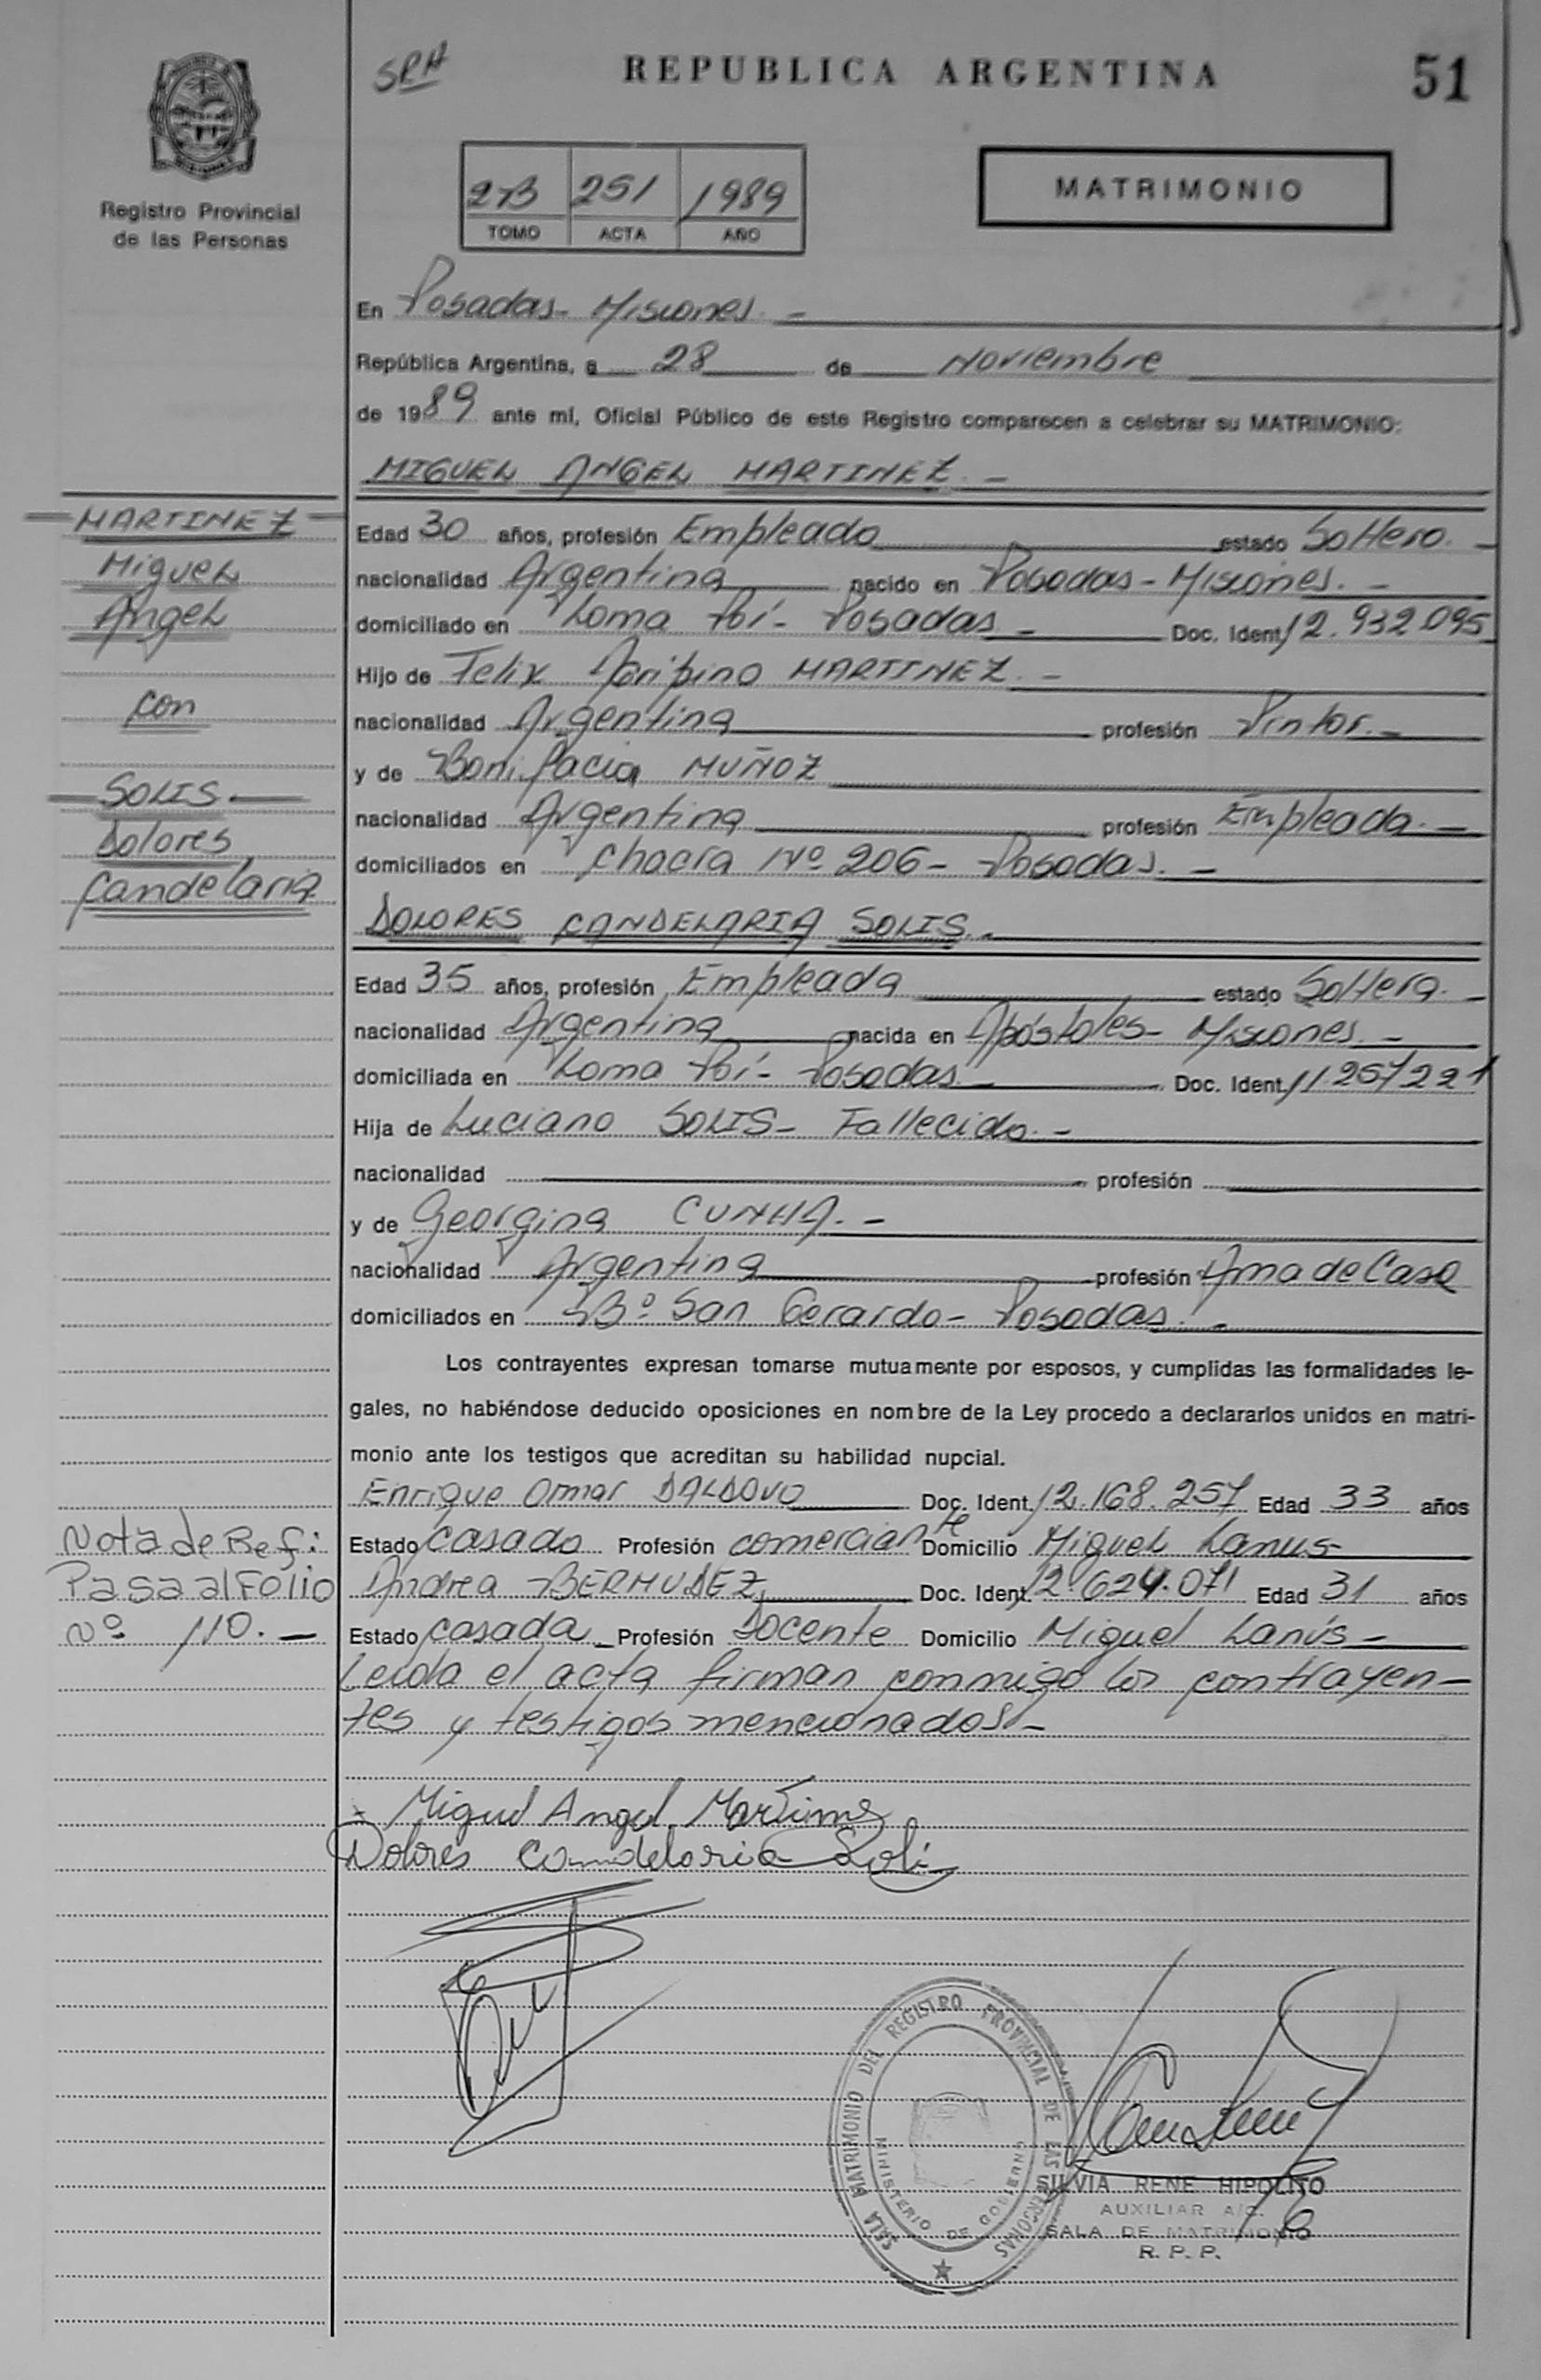 SRH
REPUBLICA ARGENTINA
51
Registro Provincial
de las Personas
2-B 251 1989
TOMO ACTA AÑO
MATRIMONIO
En Posadas- Misiones.-
República Argentina, a 28 de Noviembre
de 1989 ante mí, Oficial Público de este Registro comparecen a celebrar su MATRIMONIO:
MIGUEL ANGEL MARTINEZ.-
MARTINEZ
Miguel
Angel
con
SOLIS
Dolores
Candelaria
Edad 30 años, profesión Empleado estado Soltero.-
nacionalidad Argentina nacido en Posadas-Misiones.-
domiciliado en Loma Poí- Posadas- Doc. Ident. 12.932.095
Hijo de Felix Agripino MARTINEZ.-
nacionalidad Argentina profesión Pintor.-
y de Bonifacia MUÑOZ
nacionalidad Argentina profesión Empleada.-
domiciliados en Chacra Nº 206- Posadas.-
DOLORES CANDELARIA SOLIS.-
Edad 35 años, profesión Empleada estado Soltera.-
nacionalidad Argentina nacida en Apóstoles- Misiones.-
domiciliada en Loma Poí- Posadas- Doc. Ident. 11.257221
Hija de Luciano SOLIS- Fallecido.-
nacionalidad profesión
y de Georgina CUNHA.-
nacionalidad Argentina profesión Ama de Casa
domiciliados en Bº San Gerardo- Posadas.-
Los contrayentes expresan tomarse mutuamente por esposos, y cumplidas las formalidades le-
gales, no habiéndose deducido oposiciones en nombre de la Ley procedo a declararlos unidos en matri-
monio ante los testigos que acreditan su habilidad nupcial.
Enrique Omar DALDOVO Doc. Ident. 12.168.257 Edad 33 años
Estado casado Profesión comerciante Domicilio Miguel Lanus-
Andrea BERMUDEZ Doc. Ident. 12.624.071 Edad 31 años
Estado casada- Profesión Docente Domicilio Miguel Lanús-
Nota de Ref:
Pasa al Folio
Nº 110.-
Leída el acta firman conmigo los contrayen-
tes y testigos mencionados.-
Miguel Angel Martinez
Dolores Candelaria Solis
SALA MATRIMONIO DEL REGISTRO PROVINCIAL DE LAS PERSONAS
MINISTERIO DE GOBIERNO
SILVIA RENE HIPOLITO
AUXILIAR A/C.
SALA DE MATRIMONIO
R. P. P.